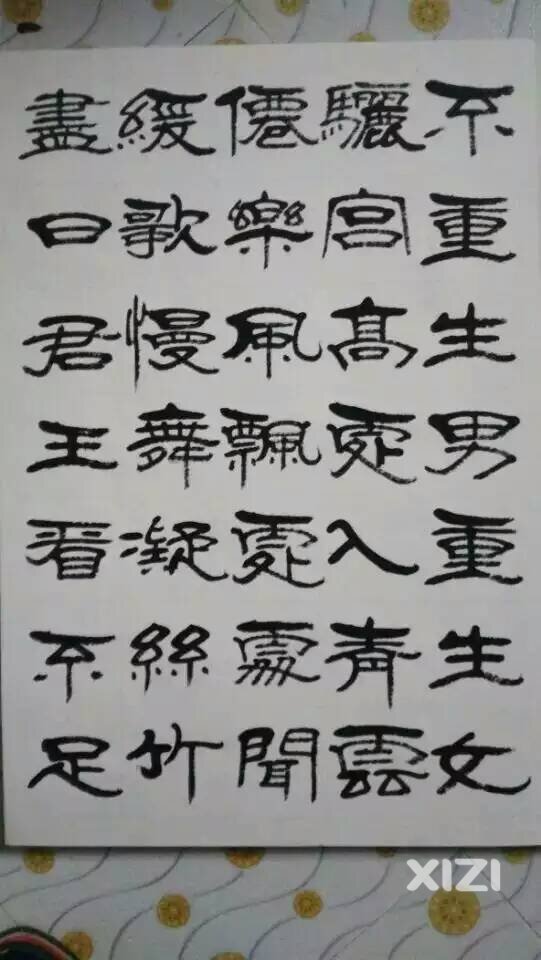 不重生男重生女
驪宮高處入青雲
僊樂風飄處處聞
緩歌慢舞凝絲竹
盡日君王看不足
XIZI